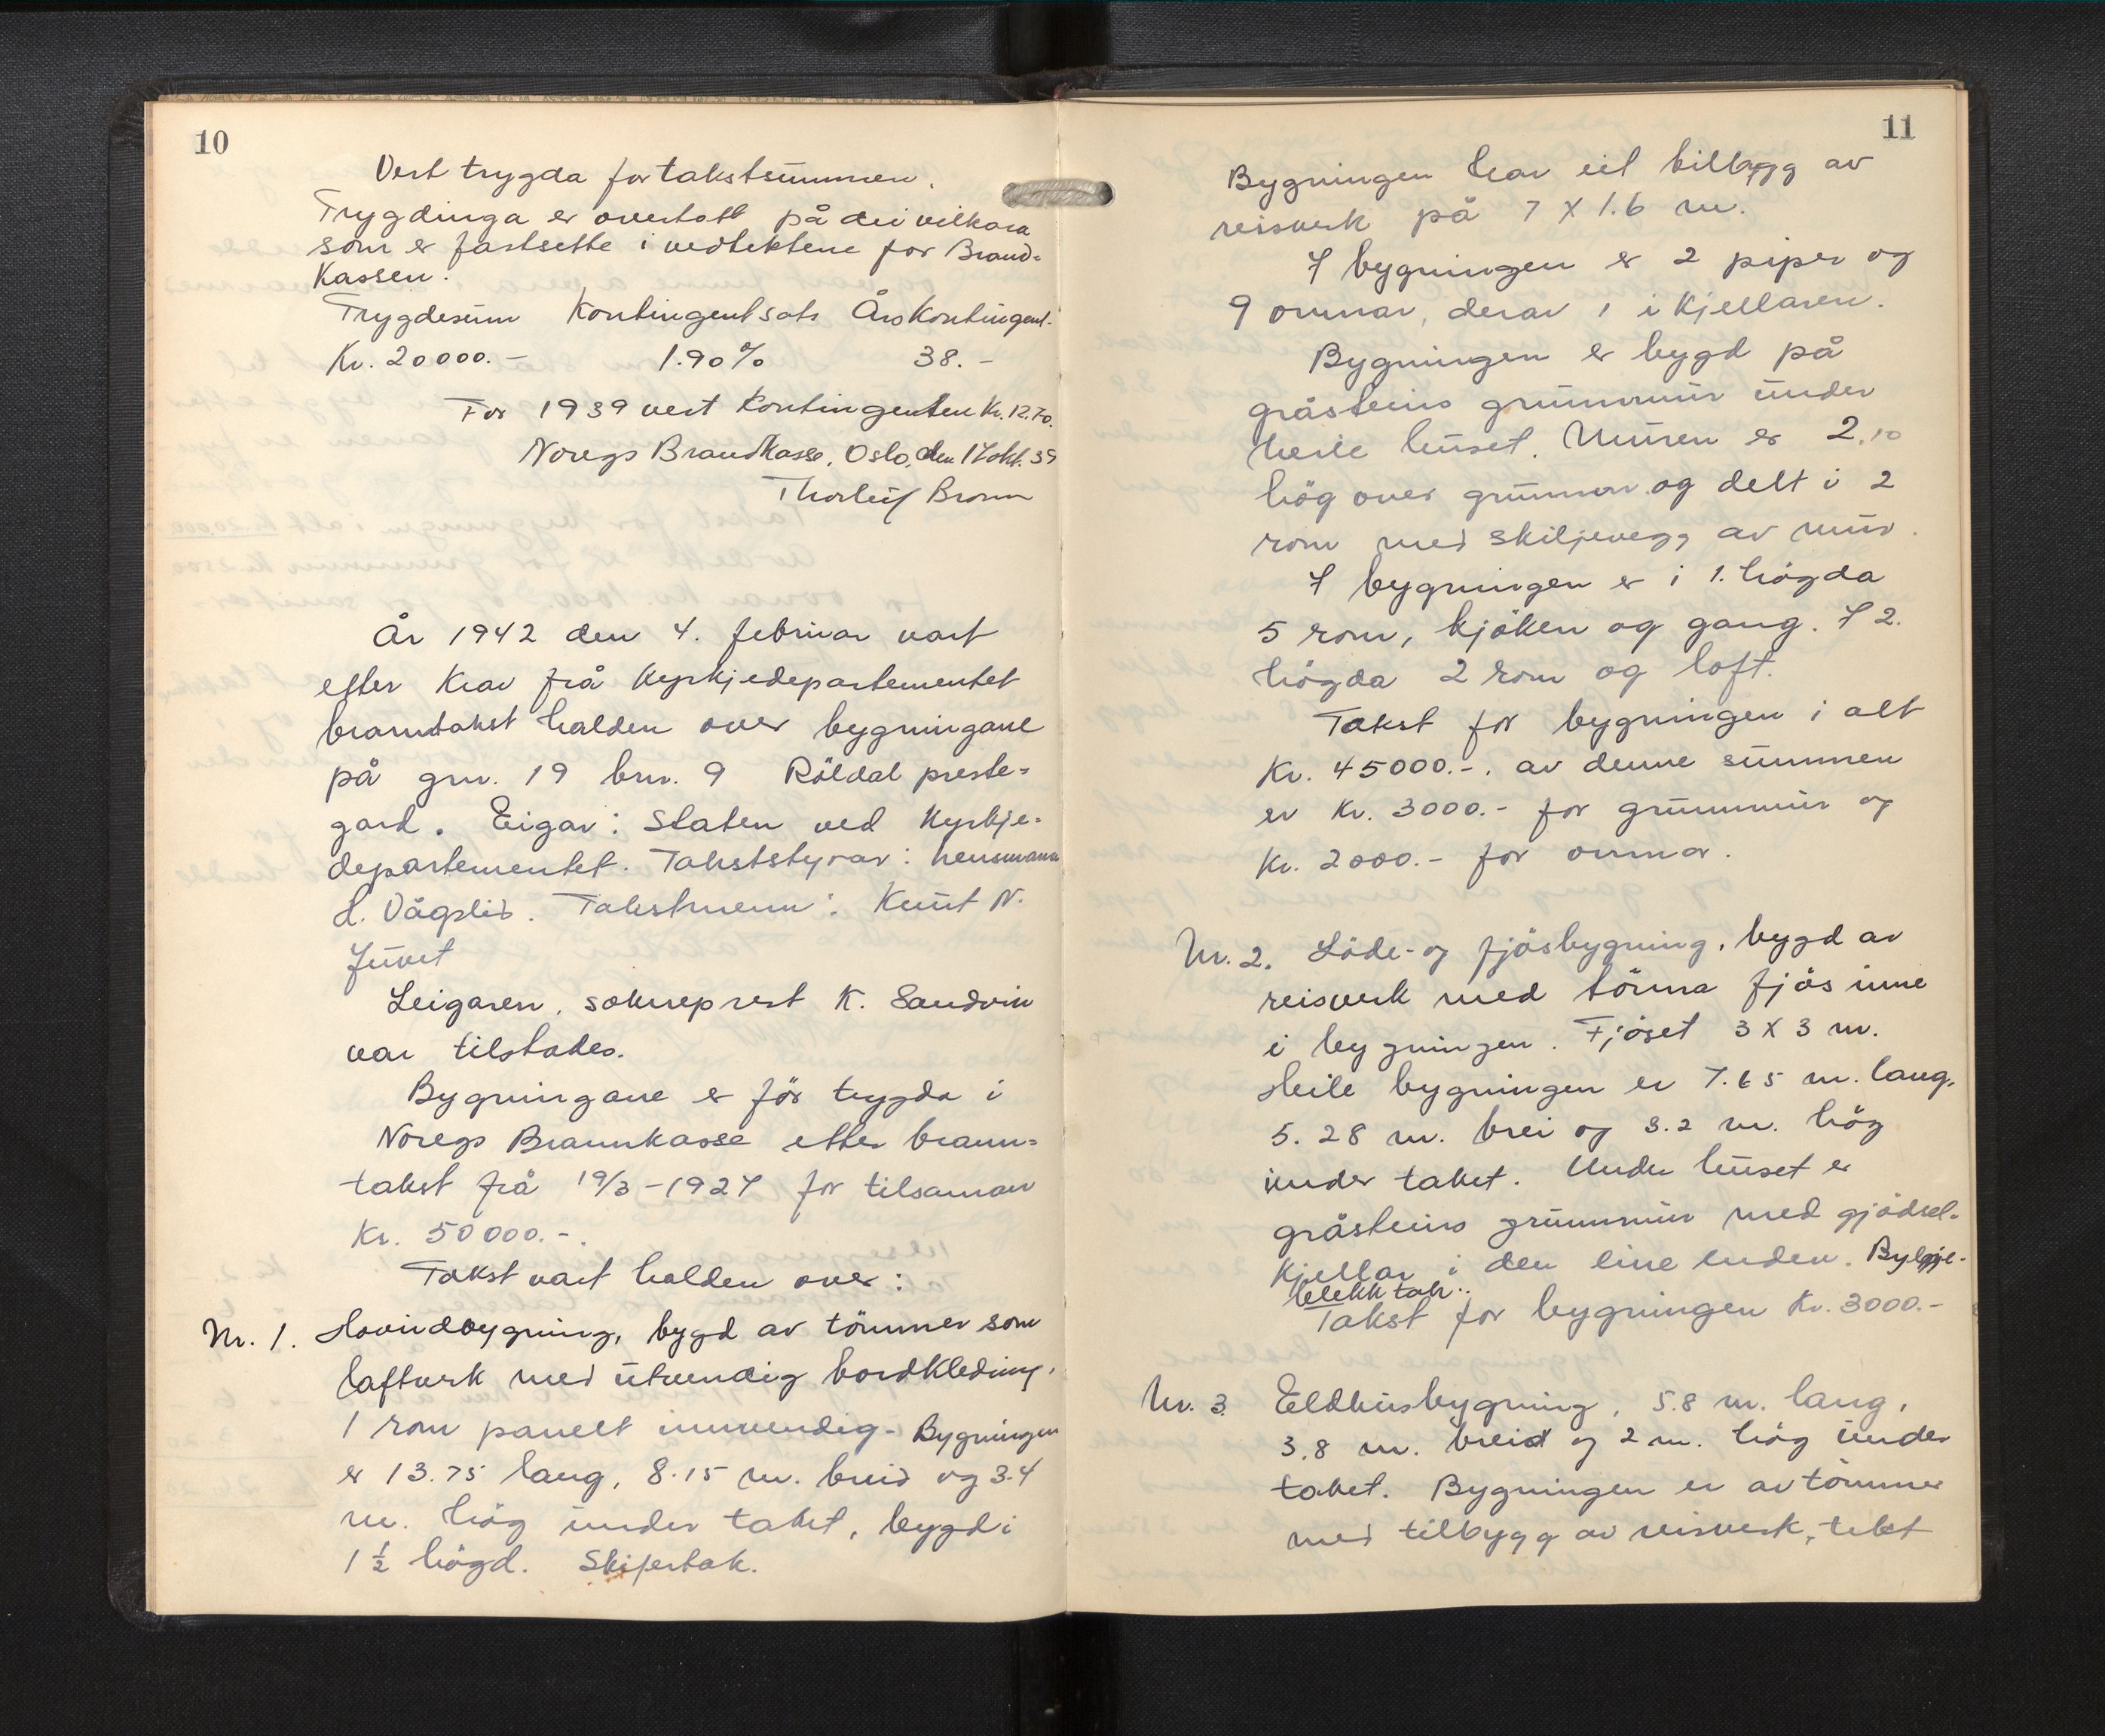 10
Vert trygda for takstsummen.
Trygdinga er overtatt på dei vilkora
som er fastsette i vedtektene for Brand-
kassen.
Trygdesum Kontingentsats Årskontingent.
Kr. 20000.- 1.90% 38.-
For 1939 vert kontingenten Kr. 12.70.
Noregs Brandkasse, Oslo, den 17 okt. 39
Thorleif Broun
År 1942 den 4. februar vart
etter krav frå Kyrkjedepartementet
branntakst halden over bygningane
på gnr. 19 bnr. 9 Röldal preste-
gard. Eigar: Staten ved Kyrkje-
departementet. Takststyrar: lensmann
L. Vågslid. Takstmenn: Knut N.
Juvet
Leigaren, sokneprest K. Sandvin
var tilstades.
Bygningane er för trygda i
Noregs Brannkasse etter brann-
takst frå 19/3-1927 for tilsaman
Kr. 50000.-.
Takst vart halden over:
Nr. 1. Hovudbygning, bygd av tömmer som
laftverk med utvendig bordkledning,
1 rom panelt innvendig. Bygningen
er 13.75 lang, 8.15 m. breid og 3.4
m. hög under taket, bygd i
1 1/2 högd. Skifertak.
11
Bygningen har eit tilbygg av
reisverk på 7 X 1.6 m.
I bygningen er 2 piper og
9 omnar, derav 1 i kjellaren.
Bygningen er bygd på
gråsteins grunnmur under
heile huset. Muren er 2.10
hög over grunnen og delt i 2
rom med skiljevegg av mur.
I bygningen er i 1. högda
5 rom, kjöken og gang. I 2.
högda 2 rom og loft.
Takst for bygningen i alt
Kr. 45000.-. av denne summen
er Kr. 3000.- for grunnmur og
Kr. 2000.- for omnar.
Nr. 2. Löde- og fjösbygning, bygd av
reisverk med tömra fjös inne
i bygningen. Fjöset 3 X 3 m.
Heile bygningen er 7.65 m. lang,
5.28 m. brei og 3.2 m. hög
under taket. Under huset er
gråsteins grunnmur med gjödsel-
kjellar i den eine enden. Bylgje-
blekk tak..
Takst for bygningen Kr. 3000.-
Nr. 3. Eldhusbygning, 5.8 m. lang,
3.8 m. breid og 2 m. hög under
taket. Bygningen er av tömmer
med tilbygg av reisverk, tekt